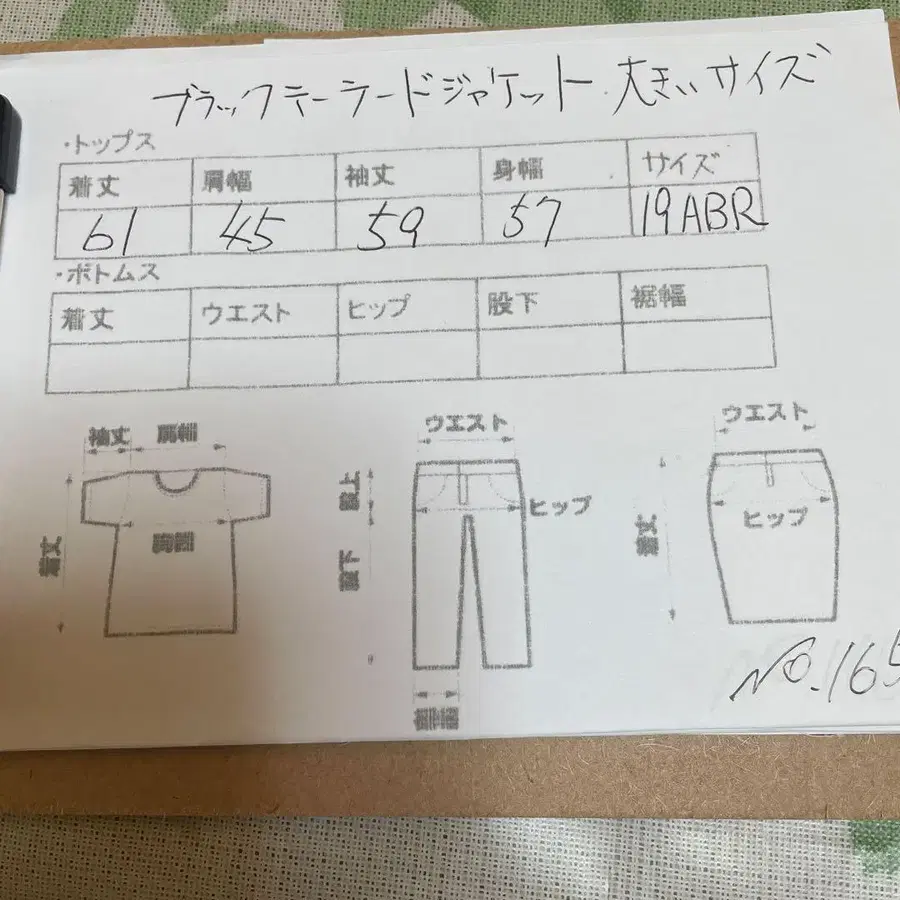 ブラックテーラードジャケット 大きいサイズ
・トップス
着丈 肩幅 袖丈 身幅 サイズ
61 45 59 57 19ABR
・ボトムス
着丈 ウエスト ヒップ 股下 裾幅
袖丈 肩幅
着丈
ウエスト
股上
ヒップ
股下
ウエスト
ヒップ
着丈
No.165